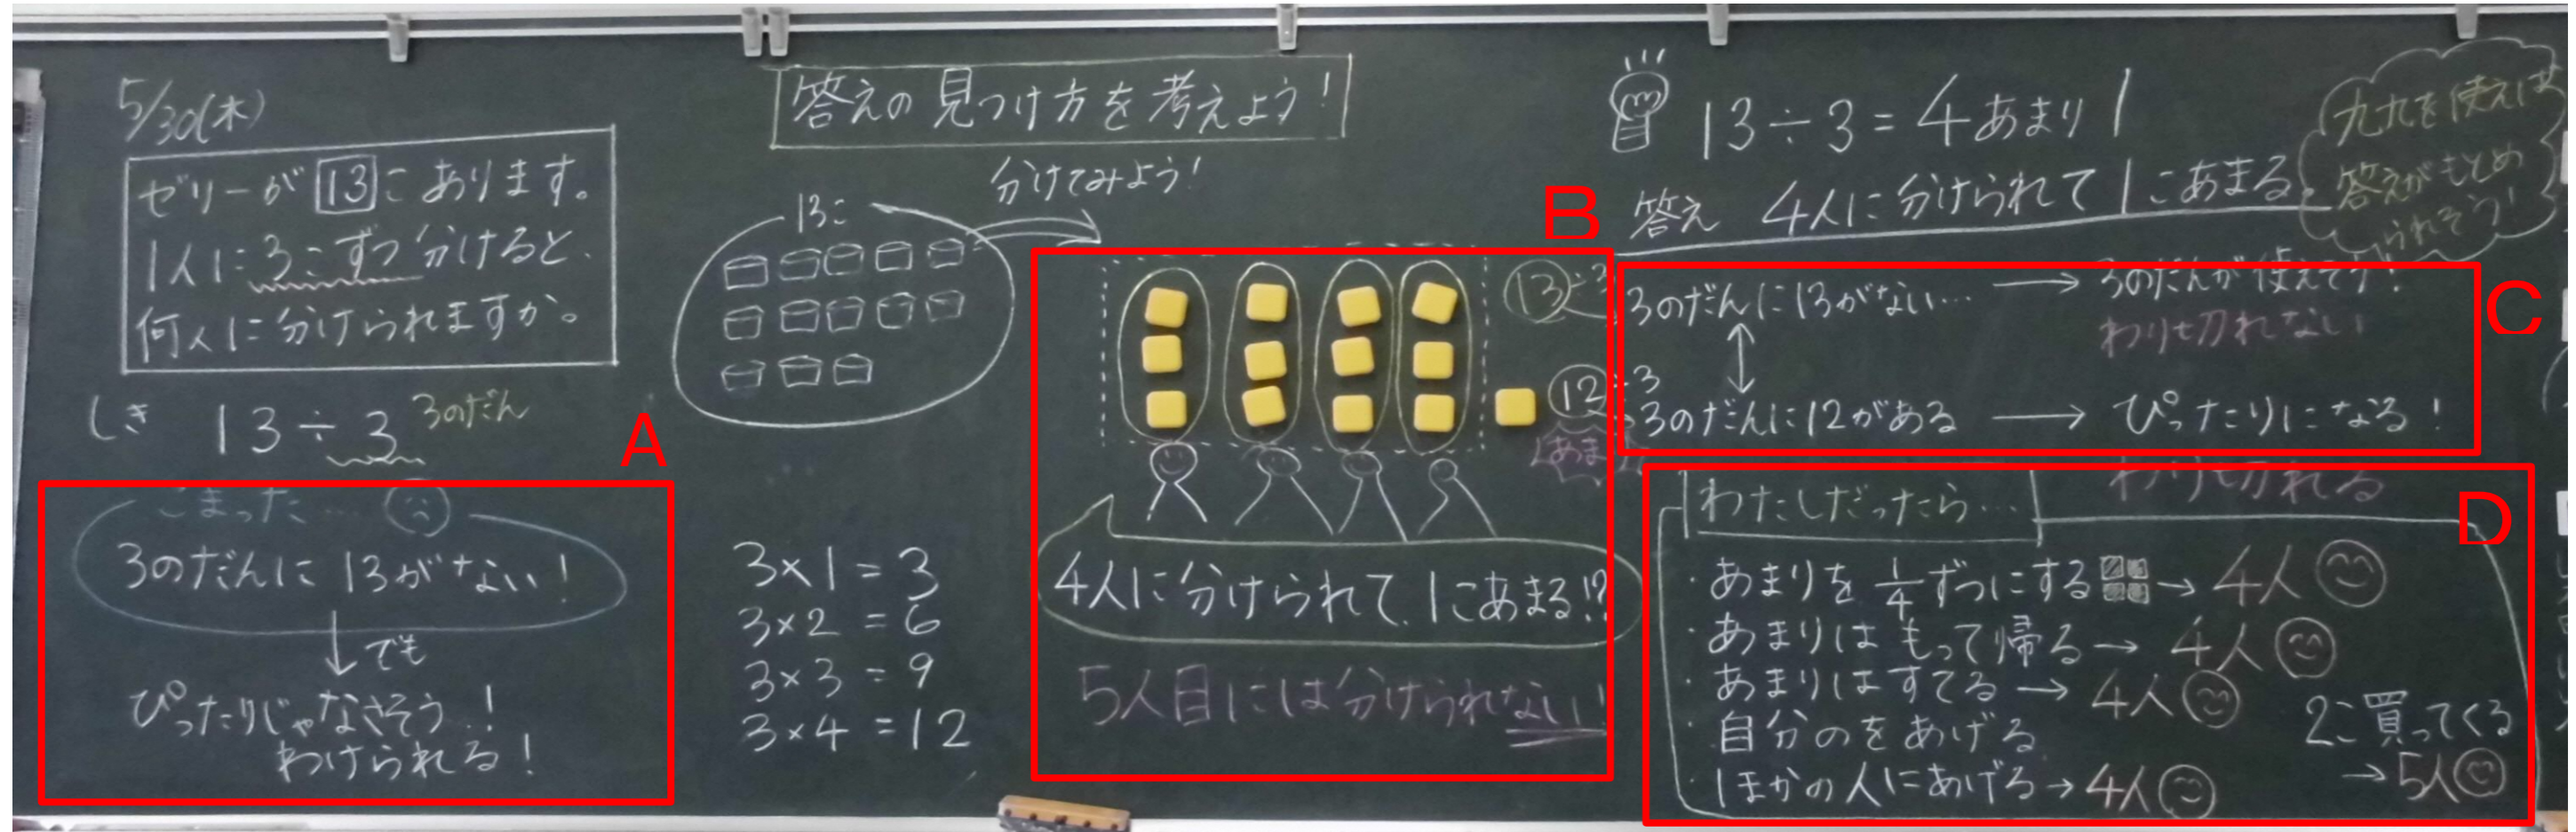 5/30(木)
ゼリーが13こあります。
1人に3こずつ分けると、
何人に分けられますか。
しき 13÷3 3のだん
A
こまった…
3のだんに13がない!
でも
ぴったりじゃなさそう!
わけられる!
答えの見つけ方を考えよう!
分けてみよう!
13こ
3×1=3
3×2=6
3×3=9
3×4=12
B
13÷3
12÷3
あま
4人に分けられて、1こあまる!?
5人目には分けられない!
13÷3=4あまり1
答え 4人に分けられて1こあまる。
九九を使えば
答えがもとめ
られそう!
C
3のだんに13がない… → 3のだんが使えそう!
わり切れない
3のだんに12がある → ぴったりになる!
わり切れる
D
わたしだったら…
・あまりを1/4ずつにする→4人
・あまりはもって帰る→4人
・あまりはすてる→4人
・自分のをあげる
・ほかの人にあげる→4人
2こ買ってくる
→5人